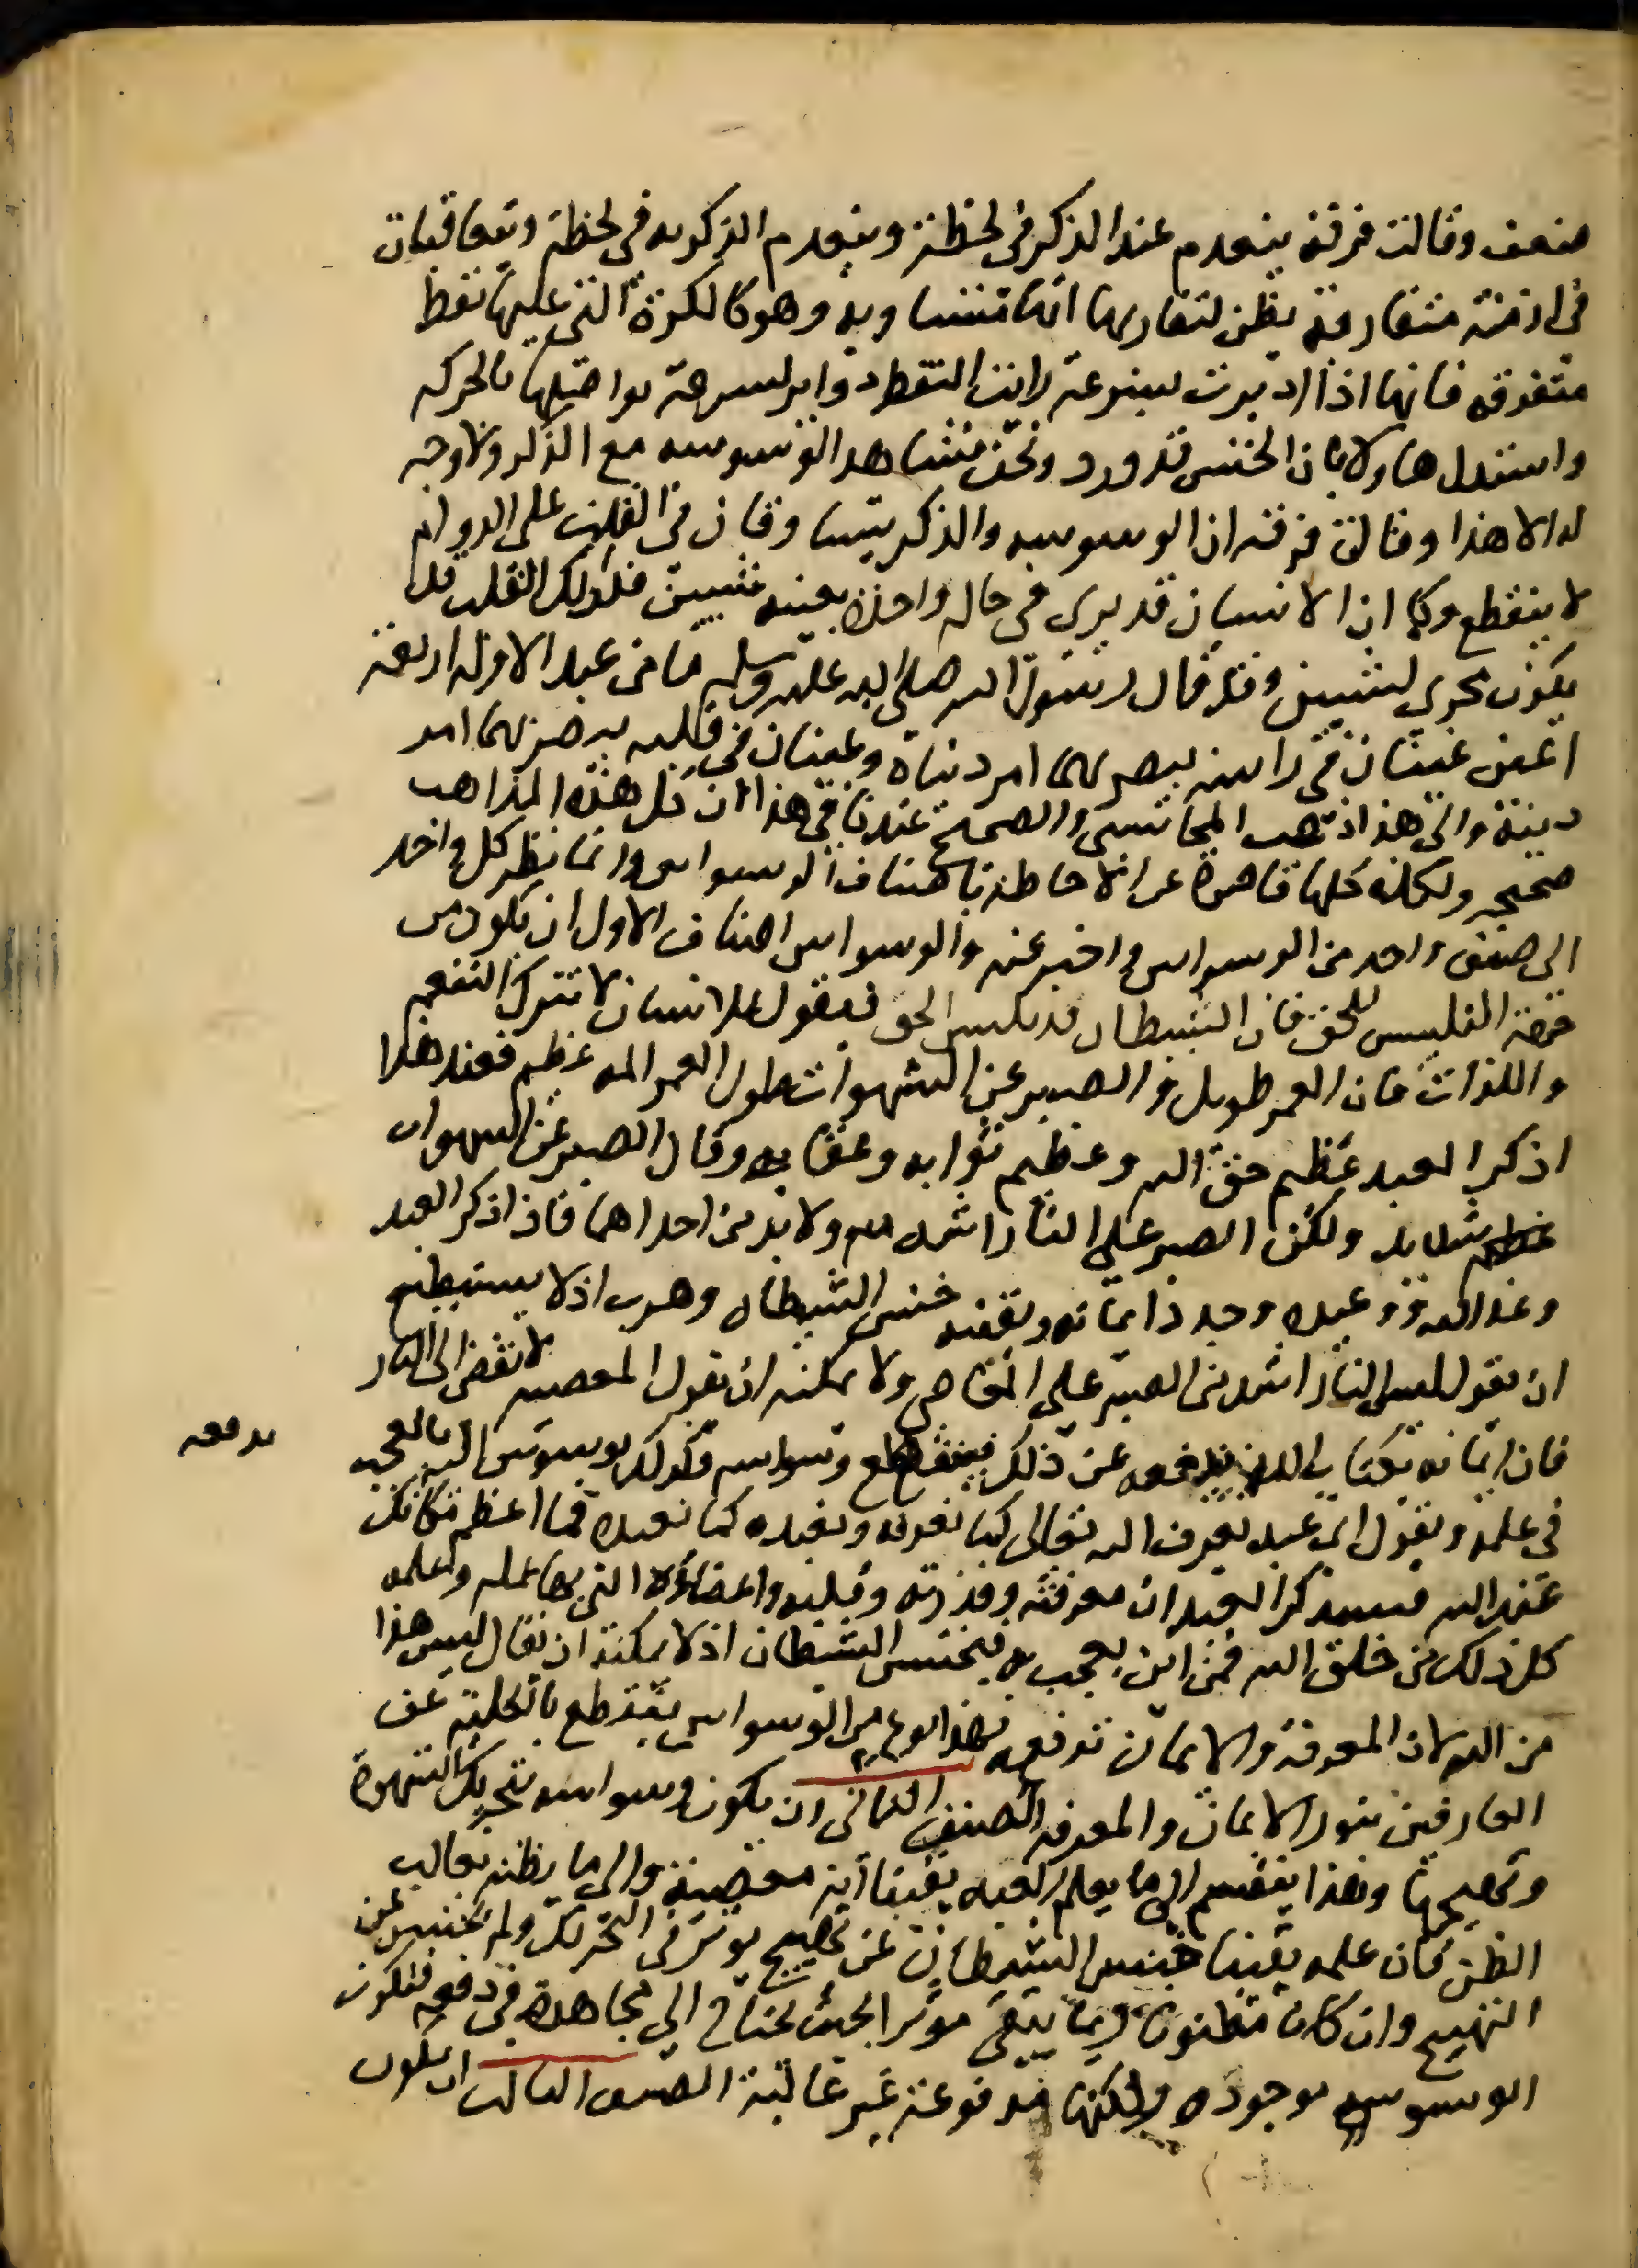 ضعف وقالت فرقة ينعدم عند الذكر في لحظة وينعدم الذكر به في لحظة ويتعاقبان
في ازمنة متقاربة يظن لتقاربها انها متساوية وهو كالكرة التي عليها نقط
متفرقة فانها اذا اديرت بسرعة رايت النقط دوايرا لسرعة تواصلها بالحركه
واستدل هاولا بان الخنس قد ورد ونحن نشاهد الوسوسه مع الذكر ولا وجه
له الا هذا وقالت فرقة ان الوسوسه والذكر يتساوقان في القلب على الدوام
لا ينقطع وكما ان الانسان قد يري في حاله واحدة بعينه شيين فكذلك القلب قد
يكون مجري لشيين وقد قال رسول الله صلى الله عليه وسلم ما من عبد الا وله اربعة
اعين عينان في راسه يبصر بهما امر دنياه وعينان في قلبه يبصر بهما امر
دينه والى هذا ذهب المحاسبي والصحيح عندنا في هذا ان كل هذه المذاهب
صحيحه ولكنه كلها قاصرة عن الاحاطة باصناف الوسواس وانما نظر كل واحد
الى صنف واحد من الوسواس واخبر عنه والوسواس اصناف الاول ان يكون من
جهة التلبيس للحق فان الشيطان قد يلبس الحق فيقول للانسان لا تترك التنعم
واللذات فان العمر طويل والصبر عن الشهوات طول العمر المه عظيم فعند هذا
اذ ذكر العبد عظيم حق الله وعظيم ثوابه وعقابه وقال الصبر عن الشهوات
شديد ولكن الصبر على النار اشد منه ولا بد من احداهما فاذا ذكر العبد
وعد الله ووعيده وجدد ايمانه ويقينه خنس الشيطان وهرب اذ لا يستطيع
ان يقول ليس النار اشد من الصبر على المعاصي ولا يمكنه ان يقول المعصيه لا تفضي الى النار
فان ايمانه بكتاب الله يدفعه عن ذلك فينقطع وسواسه وكذلك يوسوس اليه بالعجب
يدفعه
في علمه ويقول اي عبد يعرف الله تعالى كما تعرفه ويعبده كما تعبده فما اعظم مكانك
عند الله فيتذكر العبد ان معرفته وقدرته وقلبه واعضاؤه التي بها عمله وعلمه
كل ذلك من خلق الله فمن اين يعجب به فيخنس الشيطان اذ لا يمكنه ان يقال ليس هذا
من الله لان المعرفة والايمان تدفعه فهذا نوع من الوسواس ينقطع بالكلية عن
العارفين بنور الايمان والمعرفه الصنف الثاني ان يكون وسواسه بتحريك الشهوة
وتهييجها وهذا ينقسم الى ما يعلم العبد يقينا انه معصية والى ما يظنه بغالب
الظن فان علمه يقينا خنس الشيطان عن تهييج يوثر في التحريك ولم يخنس عن
التهييج وان كان مظنونا ربما يبقى موثرا بحيث يحتاج الي مجاهدة في دفعه فتكون
الوسوسه موجوده ولكنها مدفوعة غير غالبة الصنف الثالث ان يكون